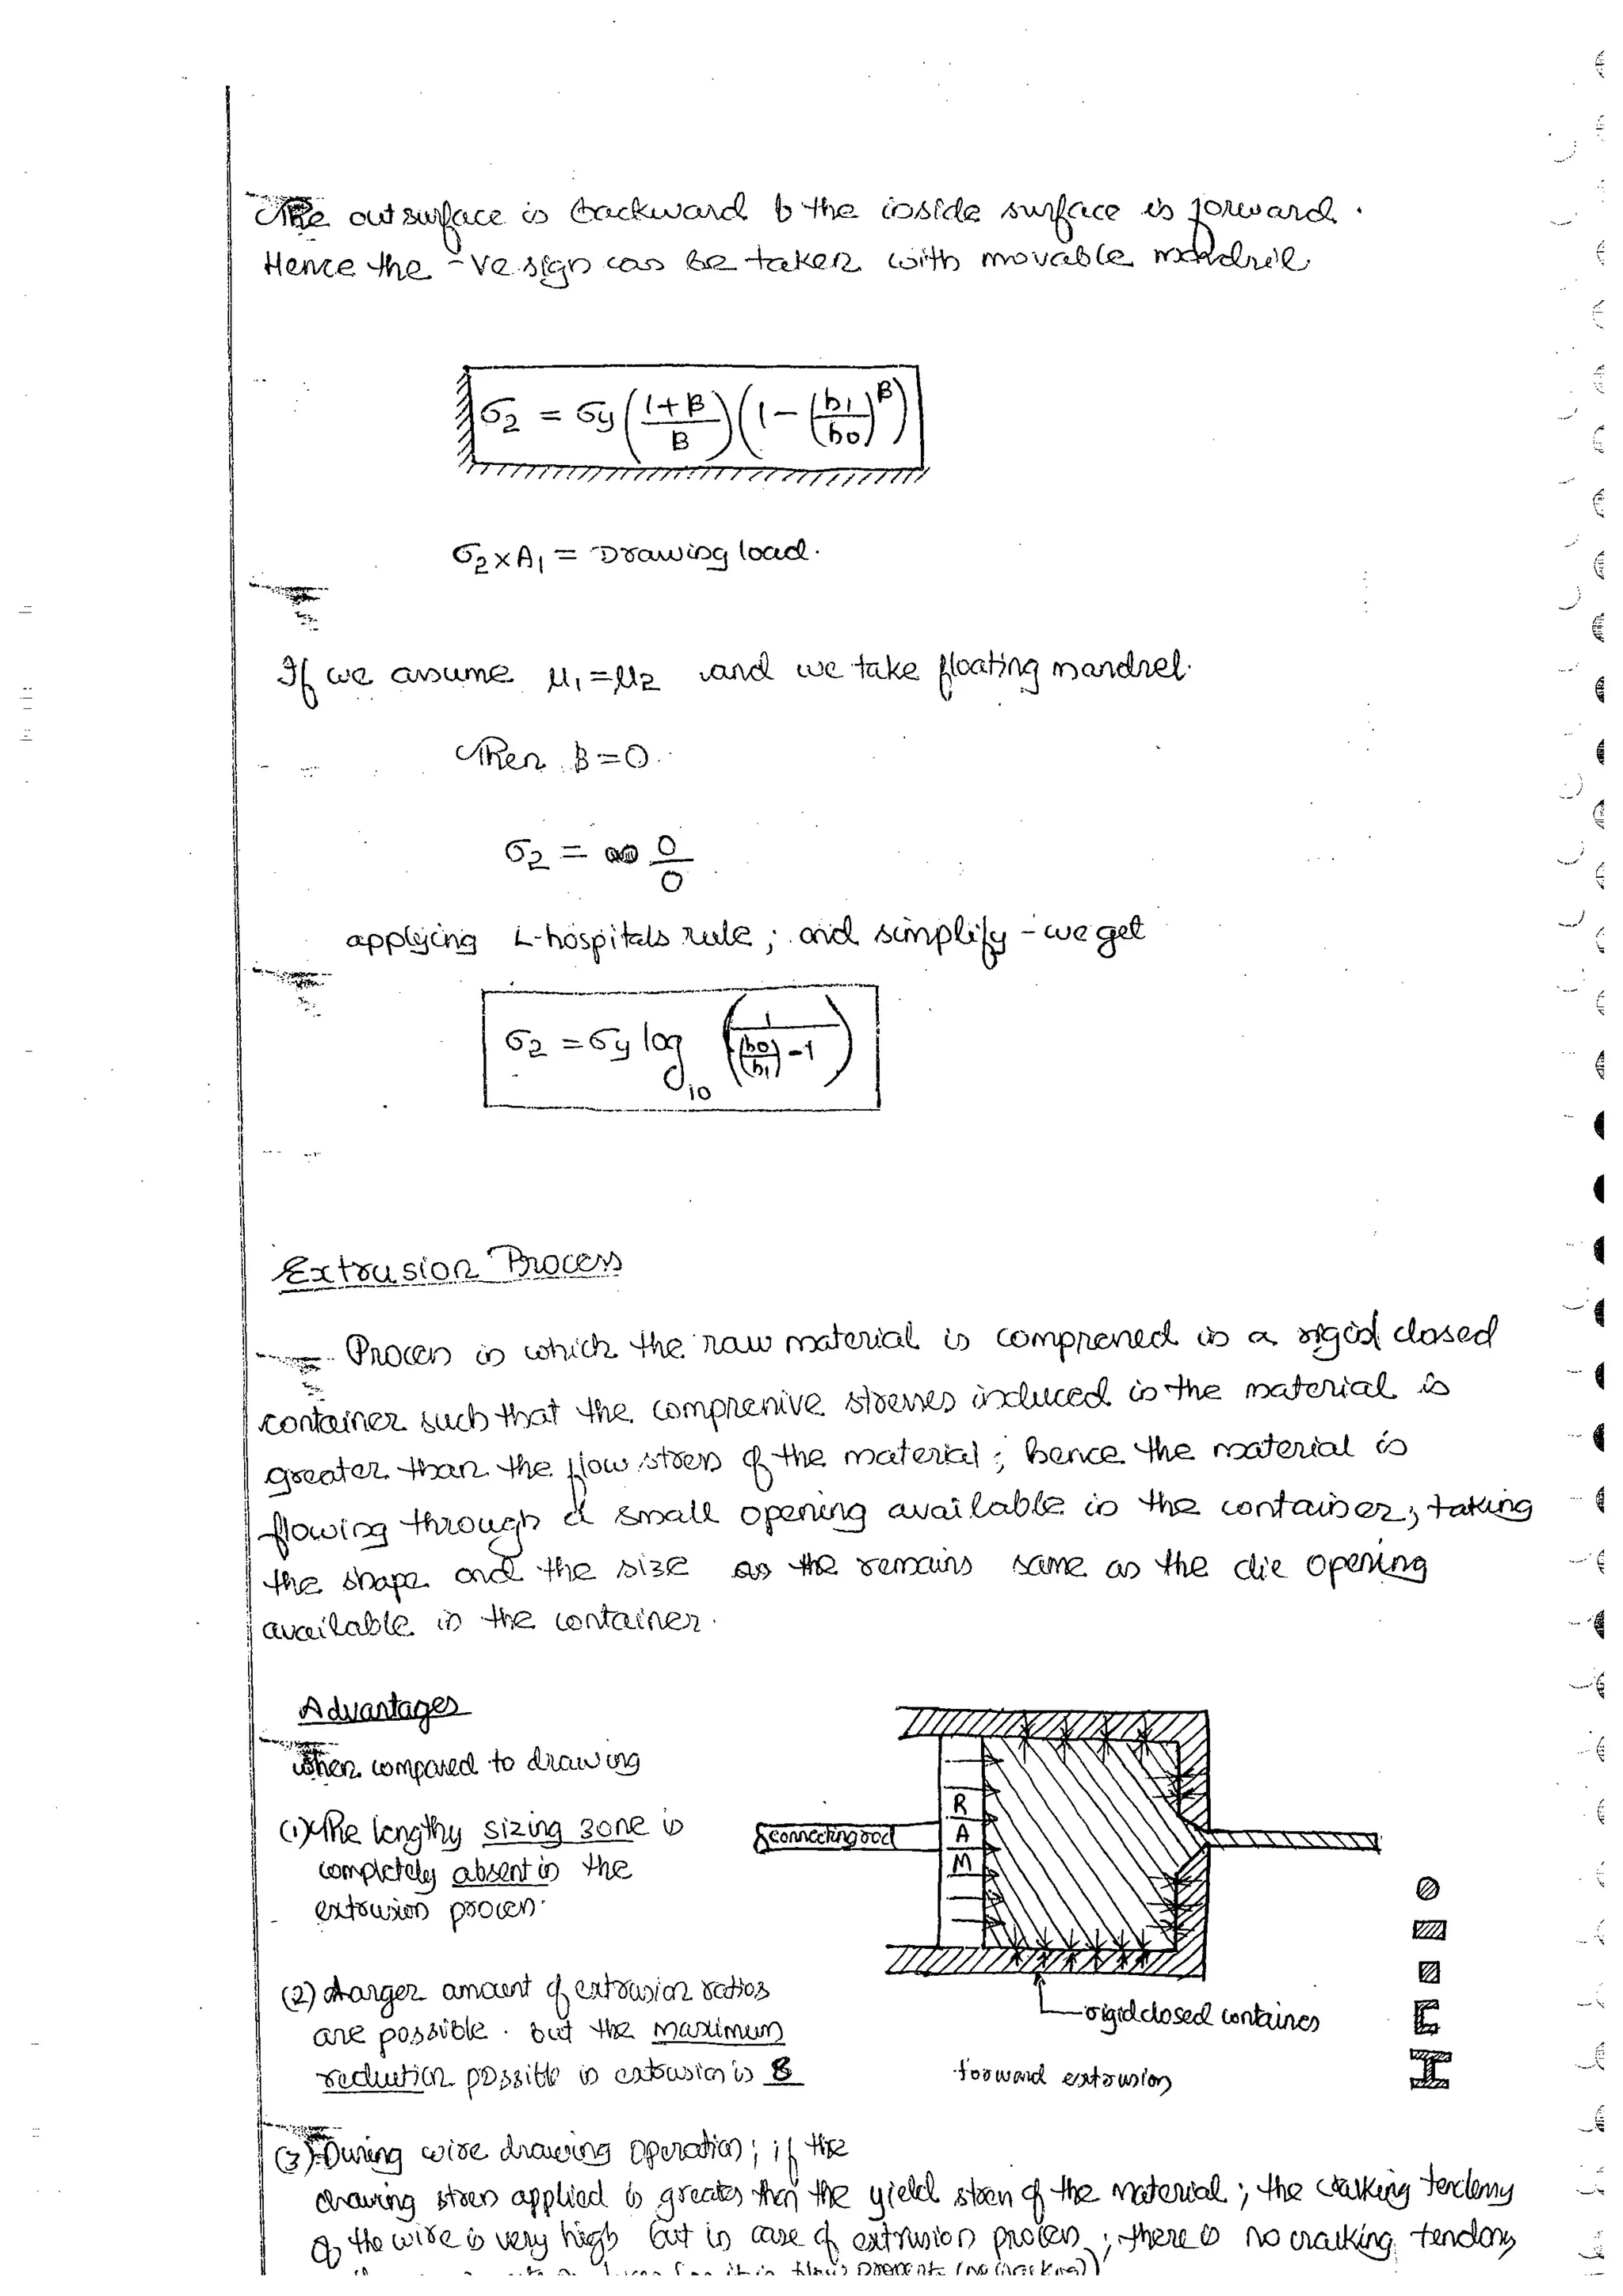 The outsurface is backward & the inside surface is forward.
Hence the -ve sign can be taken with movable mandril.
σ2 = σy ((1+B)/B) (1 - (h1/h0)^B)
σ2 x A1 = Drawing load.
If we assume μ1 = μ2 and we take floating mandrel.
Then B = 0.
σ2 = 0/0
applying L-hospitals rule; and simplify - we get
σ2 = σy log10 (1/((h0/h1) - 1))
Extrusion Process
Process in which the raw material is compressed in a rigid closed
container such that the compressive stresses induced in the material is
greater than the flow stress of the material; hence the material is
flowing through a small opening available in the container, taking
the shape and the size as the remains same as the die opening
available in the container.
Advantages
When compared to drawing
(1) The lengthy sizing zone is
completely absent in the
extrusion process.
(2) Larger amount of extrusion ratios
are possible. but the maximum
reduction possible in extrusion is 8
connecting rod
R
A
M
rigid closed container
forward extrusion
(3) During wire drawing operation; if the
drawing stress applied is greater than the yield stress of the material; the cracking tendency
of the wire is very high but in case of extrusion process; there is no cracking tendency